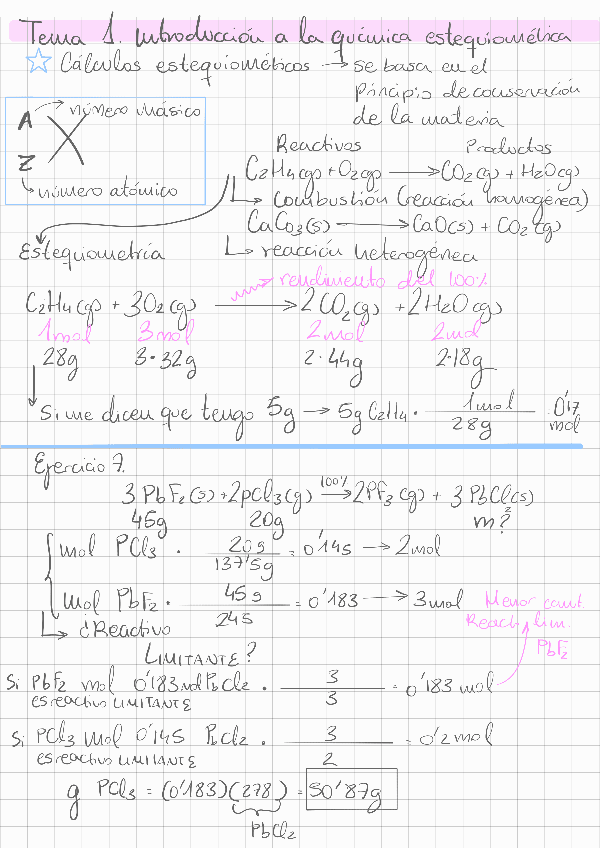 Tema 1. Introducción a la química estequiométrica
☆ Cálculos estequiométicos → se basa en el
Principio de conservación
de la materia
A → número másico
X
Z
↳ número atómico
Reactivos Productos
C₂H₄(g) + O₂(g) → CO₂(g) + H₂O(g)
↳ combustión (reacción homogénea)
CaCO₃(s) → CaO(s) + CO₂(g)
↳ reacción heterogénea
Estequiometría
→ rendimiento del 100%
C₂H₄(g) + 3O₂(g) → 2CO₂(g) + 2H₂O(g)
1mol 3mol 2mol 2mol
28g 3·32g 2·44g 2·18g
Si me dicen que tengo 5g → 5g C₂H₄ · 1mol / 28g 0'17 mol
Ejercicio 7.
3 PbF₂(s) + 2PCl₃(g) →100% 2PF₃(g) + 3 PbCl₂(s)
45g 20g m?
mol PCl₃ · 20g / 137'5g = 0'145 → 2mol
mol PbF₂ · 45g / 245 = 0'183 → 3mol
Menor cant.
React. lim.
PbF₂
↳ ¿Reactivo
LIMITANTE?
Si PbF₂ mol 0'183 mol PbCl₂ · 3 / 3 = 0'183 mol
es reactivo LIMITANTE
Si PCl₃ mol 0'145 PbCl₂ · 3 / 2 = 0'2 mol
es reactivo LIMITANTE
g PCl₃ = (0'183)(278) = 50'87g
PbCl₂